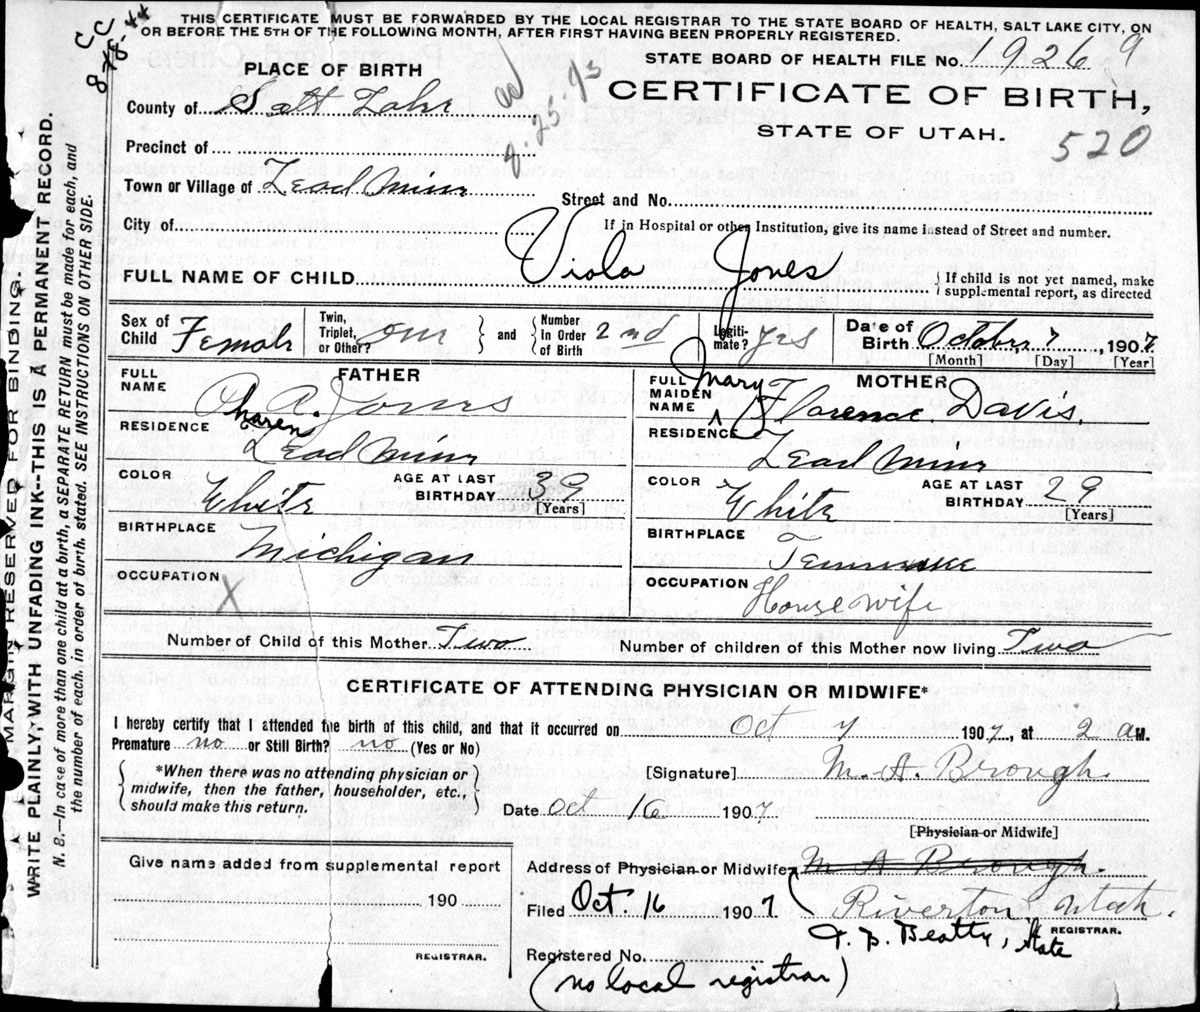 THIS CERTIFICATE MUST BE FORWARDED BY THE LOCAL REGISTRAR TO THE STATE BOARD OF HEALTH, SALT LAKE CITY, ON
OR BEFORE THE 5TH OF THE FOLLOWING MONTH, AFTER FIRST HAVING BEEN PROPERLY REGISTERED.
STATE BOARD OF HEALTH FILE No. 19269
PLACE OF BIRTH
CERTIFICATE OF BIRTH,
STATE OF UTAH.
520
County of Salt Lake
Precinct of
Town or Village of Lead Mine
Street and No.
City of
If in Hospital or other Institution, give its name instead of Street and number.
FULL NAME OF CHILD Viola Jones
{ If child is not yet named, make
supplemental report, as directed
Sex of Child Female
Twin, Triplet, or Other? one
and
Number In Order of Birth 2nd
Legitimate? yes
Date of Birth October 7, 1907
[Month] [Day] [Year]
FATHER
FULL NAME A. Jones
RESIDENCE Lead Mine
COLOR White
AGE AT LAST BIRTHDAY 39
[Years]
BIRTHPLACE Michigan
OCCUPATION X
MOTHER
FULL MAIDEN NAME Mary Florence Davis.
RESIDENCE Lead Mine
COLOR White
AGE AT LAST BIRTHDAY 29
[Years]
BIRTHPLACE Tennessee
OCCUPATION House wife
Number of Child of this Mother Two
Number of children of this Mother now living Two
CERTIFICATE OF ATTENDING PHYSICIAN OR MIDWIFE*
I hereby certify that I attended the birth of this child, and that it occurred on Oct 7 1907, at 2 a M.
Premature no or Still Birth? no (Yes or No)
*When there was no attending physician or
midwife, then the father, householder, etc.,
should make this return.
[Signature] M. A. Brough
Date Oct 16 1907
[Physician or Midwife]
Give name added from supplemental report
190
REGISTRAR.
Address of Physician or Midwife M A Brough.
Riverton Utah.
Filed Oct. 16 1907
Beatty, State
REGISTRAR.
Registered No.
(no local registrar)
MARGIN RESERVED FOR BINDING.
WRITE PLAINLY, WITH UNFADING INK--THIS IS A PERMANENT RECORD.
N. B.—In case of more than one child at a birth, a SEPARATE RETURN must be made for each, and
the number of each, in order of birth, stated. SEE INSTRUCTIONS ON OTHER SIDE.